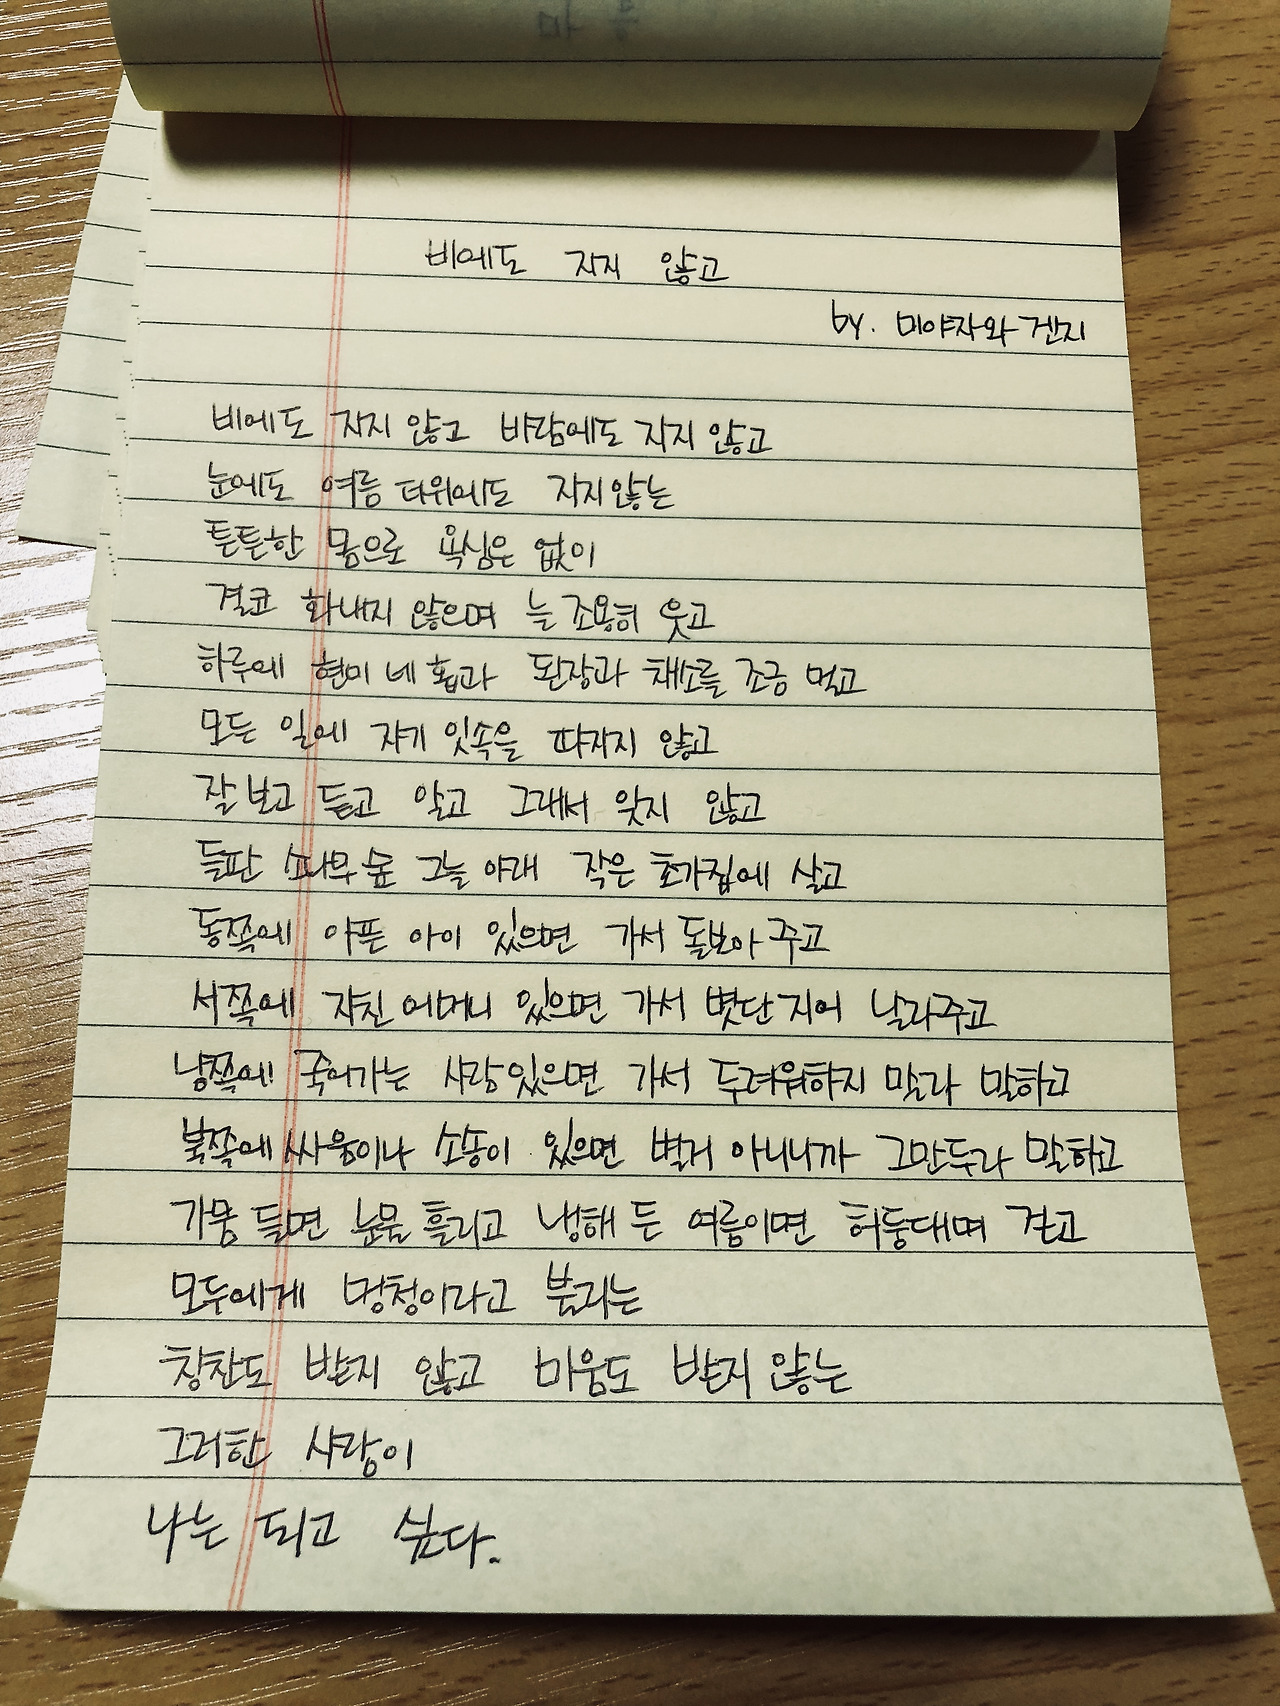 비에도 지지 않고
by. 미야자와 겐지
비에도 지지 않고 바람에도 지지 않고
눈에도 여름 더위에도 지지않는
튼튼한 몸으로 욕심은 없이
결코 화내지 않으며 늘 조용히 웃고
하루에 현미 네 홉과 된장과 채소를 조금 먹고
모든 일에 자기 잇속을 따지지 않고
잘 보고 듣고 알고 그래서 잊지 않고
들판 소나무 숲 그늘 아래 작은 초가집에 살고
동쪽에 아픈 아이 있으면 가서 돌보아 주고
서쪽에 지친 어머니 있으면 가서 볏단 지어 날라주고
남쪽에 죽어가는 사람있으면 가서 두려워하지 말라 말하고
북쪽에 싸움이나 소송이 있으면 별거 아니니까 그만두라 말하고
가뭄 들면 눈물 흘리고 냉해 든 여름이면 허둥대며 걷고
모두에게 멍청이라고 불리는
칭찬도 받지 않고 미움도 받지 않는
그러한 사람이
나는 되고 싶다.